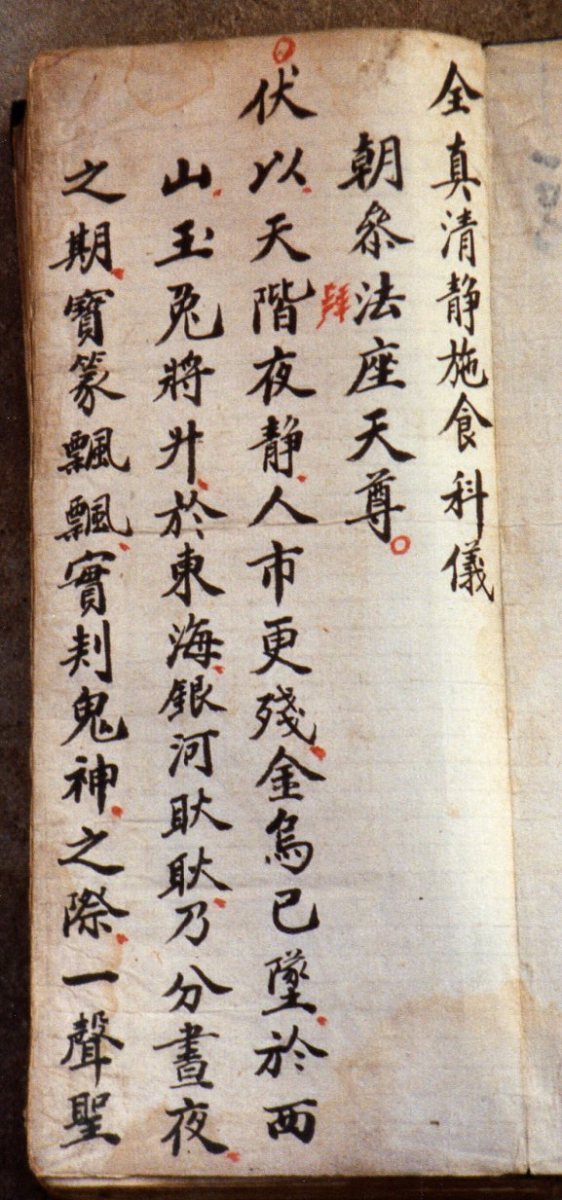 全真清静施食科儀
朝叅法座天尊
拜
伏以天階夜静人市更殘金烏已墜於西
山玉兎將升於東海銀河耿耿乃分晝夜
之期寳篆飄飄實判鬼神之際一聲聖